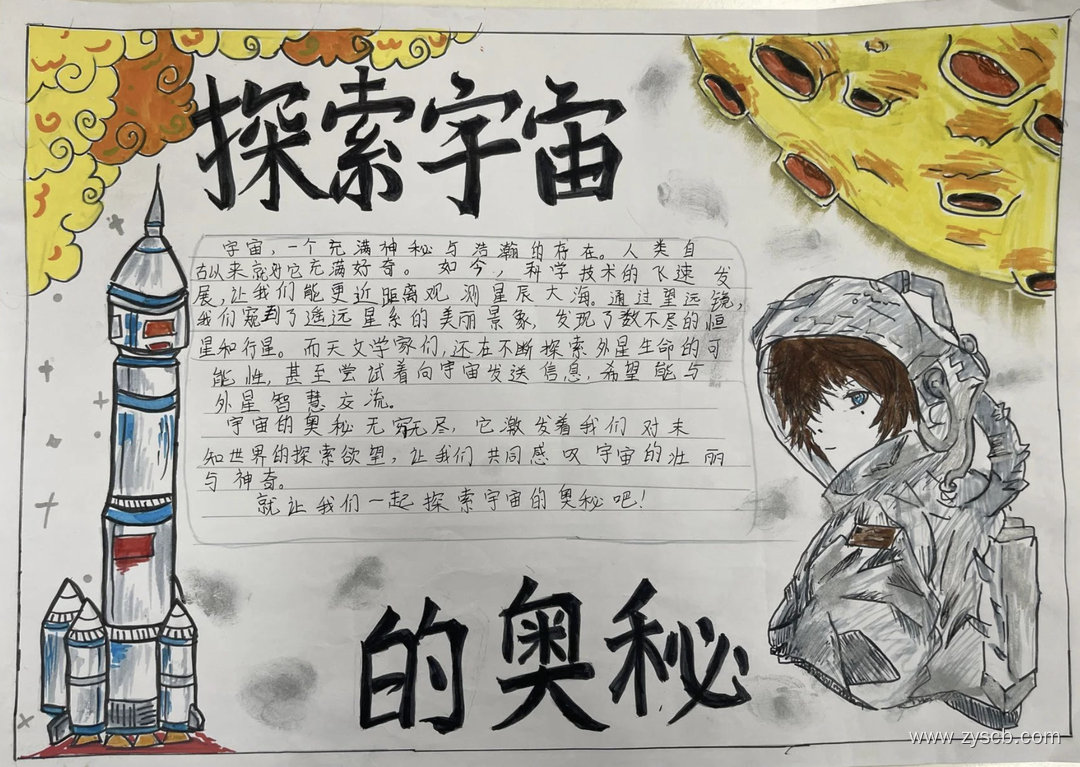 探索宇宙
宇宙，一个充满神秘与浩瀚的存在。人类自
古以来就对它充满好奇。如今，科学技术的飞速发
展，让我们能更近距离观测星辰大海。通过望远镜，
我们窥到了遥远星系的美丽景象，发现了数不尽的恒
星和行星。而天文学家们，还在不断探索外星生命的可
能性，甚至尝试着向宇宙发送信息，希望能与
外星智慧交流。
宇宙的奥秘无穷无尽，它激发着我们对未
知世界的探索欲望，让我们共同感叹宇宙的壮丽
与神奇。
就让我们一起探索宇宙的奥秘吧！
的奥秘
www.zyscb.com